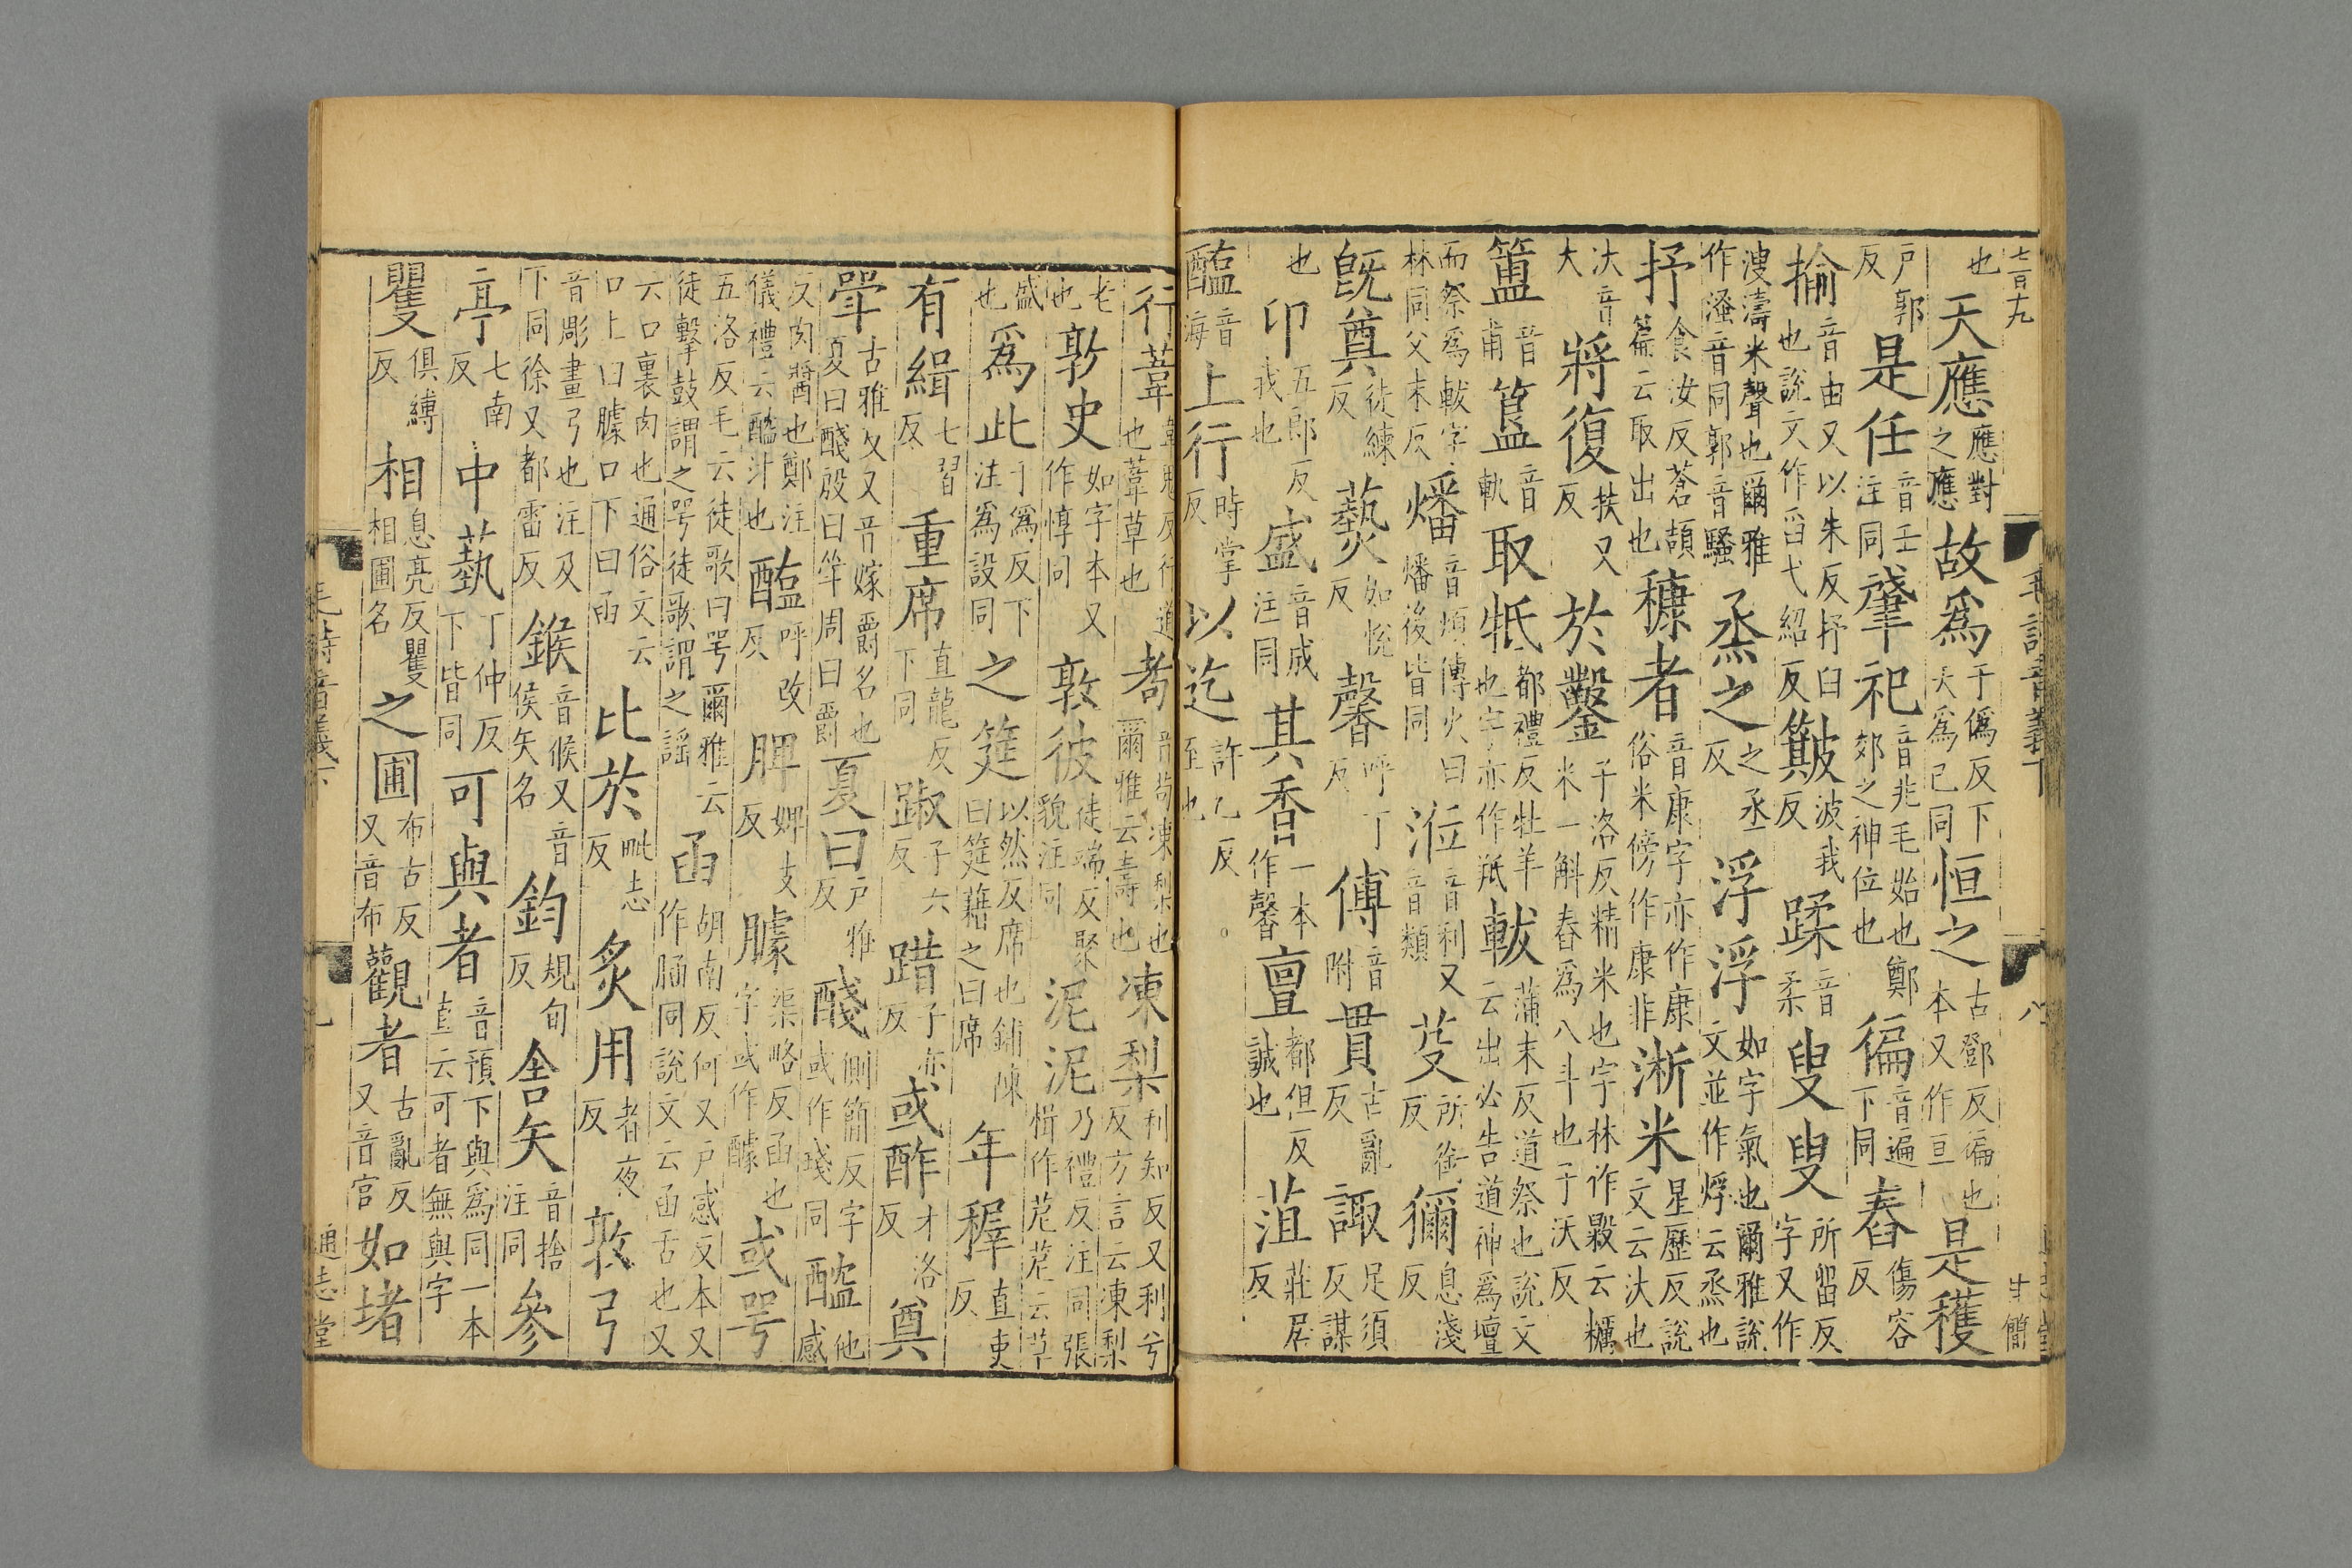 七百九
毛詩音義下
八
也天應應對之應故爲于僞反下天爲已同恒之古鄧反徧也本又作亘是穫
戶郭反是任音壬注同肇祀音兆毛始也鄭郊之神位也徧音遍下同舂傷容反
揄音由又以朱反抒臼也說文作舀弋紹反簸波我反蹂音柔叟叟所留反字又作
溲濤米聲也爾雅作溞音同郭音騷烝之之丞反浮浮如字氣也爾雅說文並作烰云烝也
抒食汝反蒼頡篇云取出也穅者音康字亦作康俗米傍作康非淅米星歷反說文云汏也
汏音大將復扶又反於鑿子洛反精米也字林作毇云糲米一斛舂爲八斗也子沃反
簠音甫簋音軌取羝都禮反牡羊也字亦作羝軷蒲末反道祭也說文云出必告道神爲壇
而祭爲軷字林同父末反燔音煩傅火曰燔後皆同涖音利又音類芟所銜反獮息淺反
旣奠徒練反爇如悅反馨呼丁反傅音附貫古亂反諏足須反謀
也卬五郎反我也盛音成注同其香一本作馨亶都但反誠也菹莊居反
醢音海上行時掌反以迄許乙反至也
行葦韋鬼反行道也葦草也耇音苟凍梨也爾雅云壽也凍梨利知反又利兮反方言云凍梨
老也敦史如字本又作惇同敦彼徒端反聚貌注同泥泥乃禮反注同張揖作苨苨云草
盛也爲此于爲反下注爲設同之筵以然反席也鋪陳曰筵藉之曰席年穉直吏反
有緝七習反重席直龍反下同踧子六反踖子亦反或酢才洛反奠
斝古雅反又音嫁爵名也夏曰醆殷曰斝周曰爵夏曰戶雅反醆側簡反字或作琖同醓他感
反肉醬也鄭注儀禮云醓汁也醢呼改反脾婢支反臄渠略反函也字或作醵或咢
五洛反毛云徒歌曰咢爾雅云徒擊鼓謂之咢徒歌謂之謠函胡南反何又戶感反本又作肣同說文云函舌也又
六口裏肉也通俗文云口上曰臄口下曰函比於毗志反炙用者夜反敦弓
音彫畫弓也注及下同徐又都雷反鍭音候又音侯矢名鈞規旬反舍矢音捨注同參
亭七南反中蓺丁仲反下皆同可與者音預下與爲同一本直云可者無與字
矍俱縛反相息亮反矍相圃名之圃布古反又音布觀者古亂反又音官如堵
毛詩音義下
通志堂